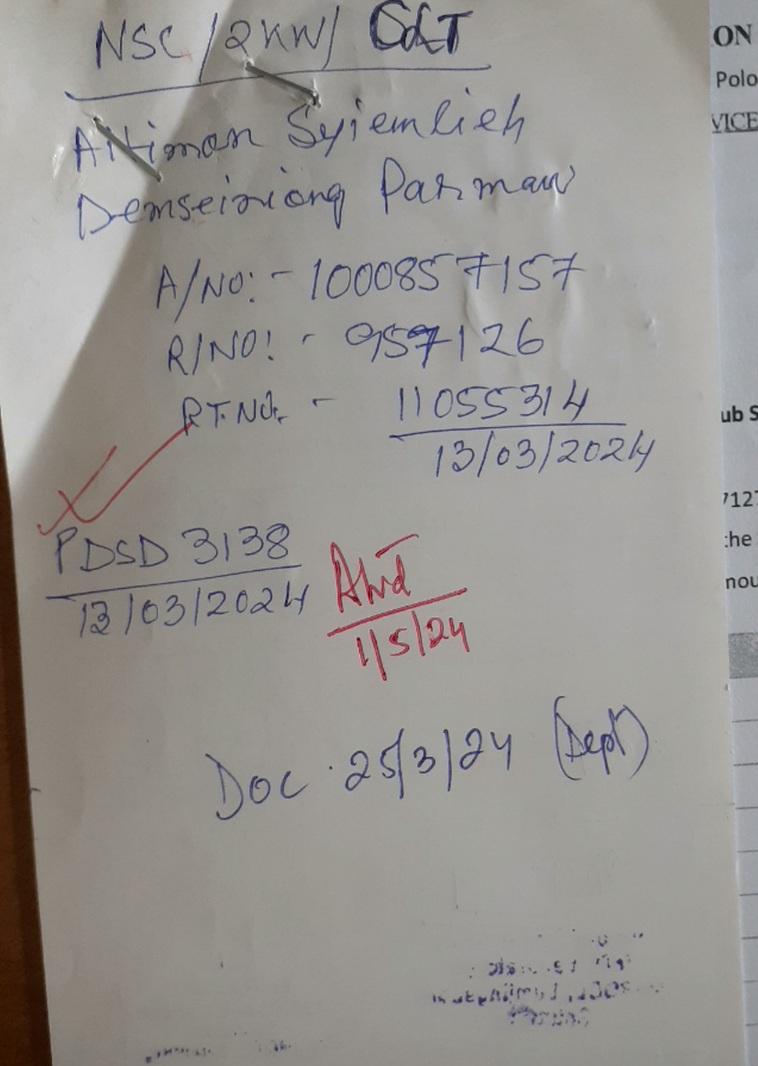 NSC/2KW/ CLT
Aitimon Syiemlieh
Demseiniong Parmaw
A/NO:- 1000857157
R/NO:- 957126
RT.NO. - 11055314
13/03/2024
PDSD 3138
13/03/2024
1/5/24
DOC . 25/3/24 (Dept)
ON
Polo
VICE
ub S
7127
the
nou